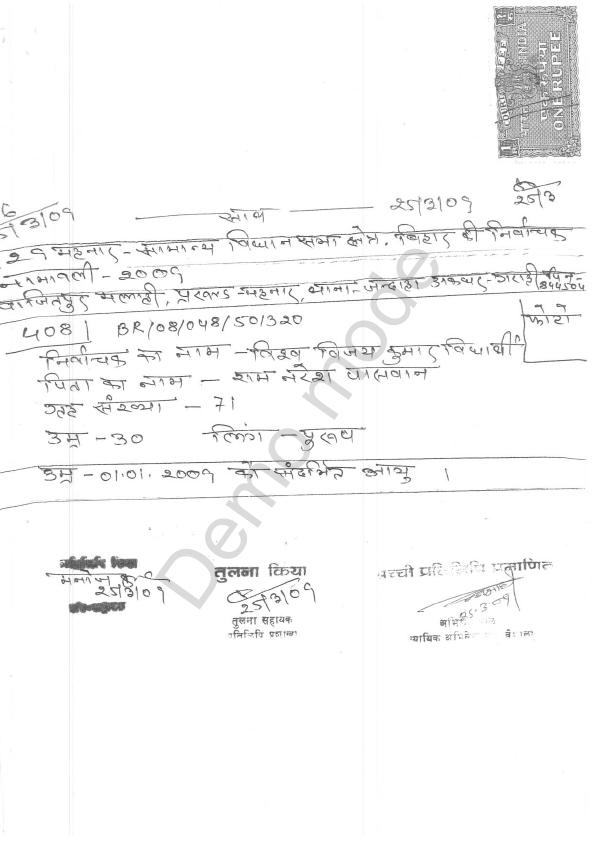 COURT FEE
INDIA
एक रुपया
ONE RUPEE
25/3/09
/3/09 साथ 25/3/09
29 महनार - सामान्य विधान सभा क्षेत्र, बिहार की निर्वाचक
नामावली - 2009
वाजितपुर मलाही, प्रखण्ड - महनार, थाना - जन्दाहा डाकघर - गराही पिन - 844504
408 BR/08/048/501320 फोटो
निर्वाचक का नाम - विश्व विजय कुमार विद्यार्थी
पिता का नाम - राम नरेश पासवान
गृह संख्या - 71
उम्र - 30 लिंग - पुरुष
उम्र - 01.01.2009 को संदर्भित आयु ।
मनोज
25/3/09
तुलना किया
25/3/09
तुलना सहायक
प्रतिलिपि प्रशाखा
सच्ची प्रतिलिपि प्रमाणित
25.3.09
न्यायिक
Demo mode